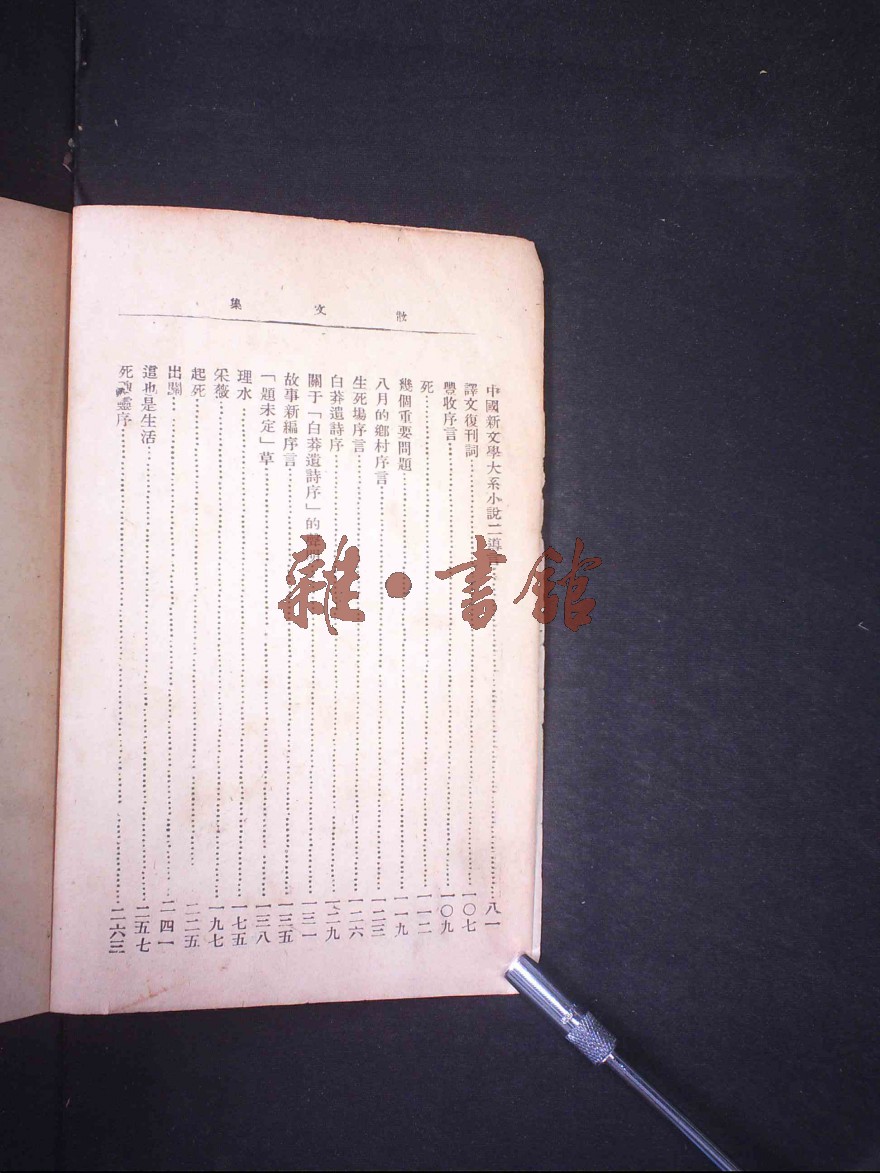 散文集
中國新文學大系小說二導…………八一
譯文復刊詞…………一〇七
豐收序言…………一〇九
死…………一一二
幾個重要問題…………一一九
八月的鄉村序言…………一二三
生死場序言…………一二六
白莽遺詩序…………一二九
關于「白莽遺詩序」的…………一三一
故事新編序言…………一三五
「題未定」草…………一三八
理水…………一七五
采薇…………一九七
起死…………二二五
出關…………二四一
這也是生活…………二五七
死魂靈序…………二六三
雜·書館